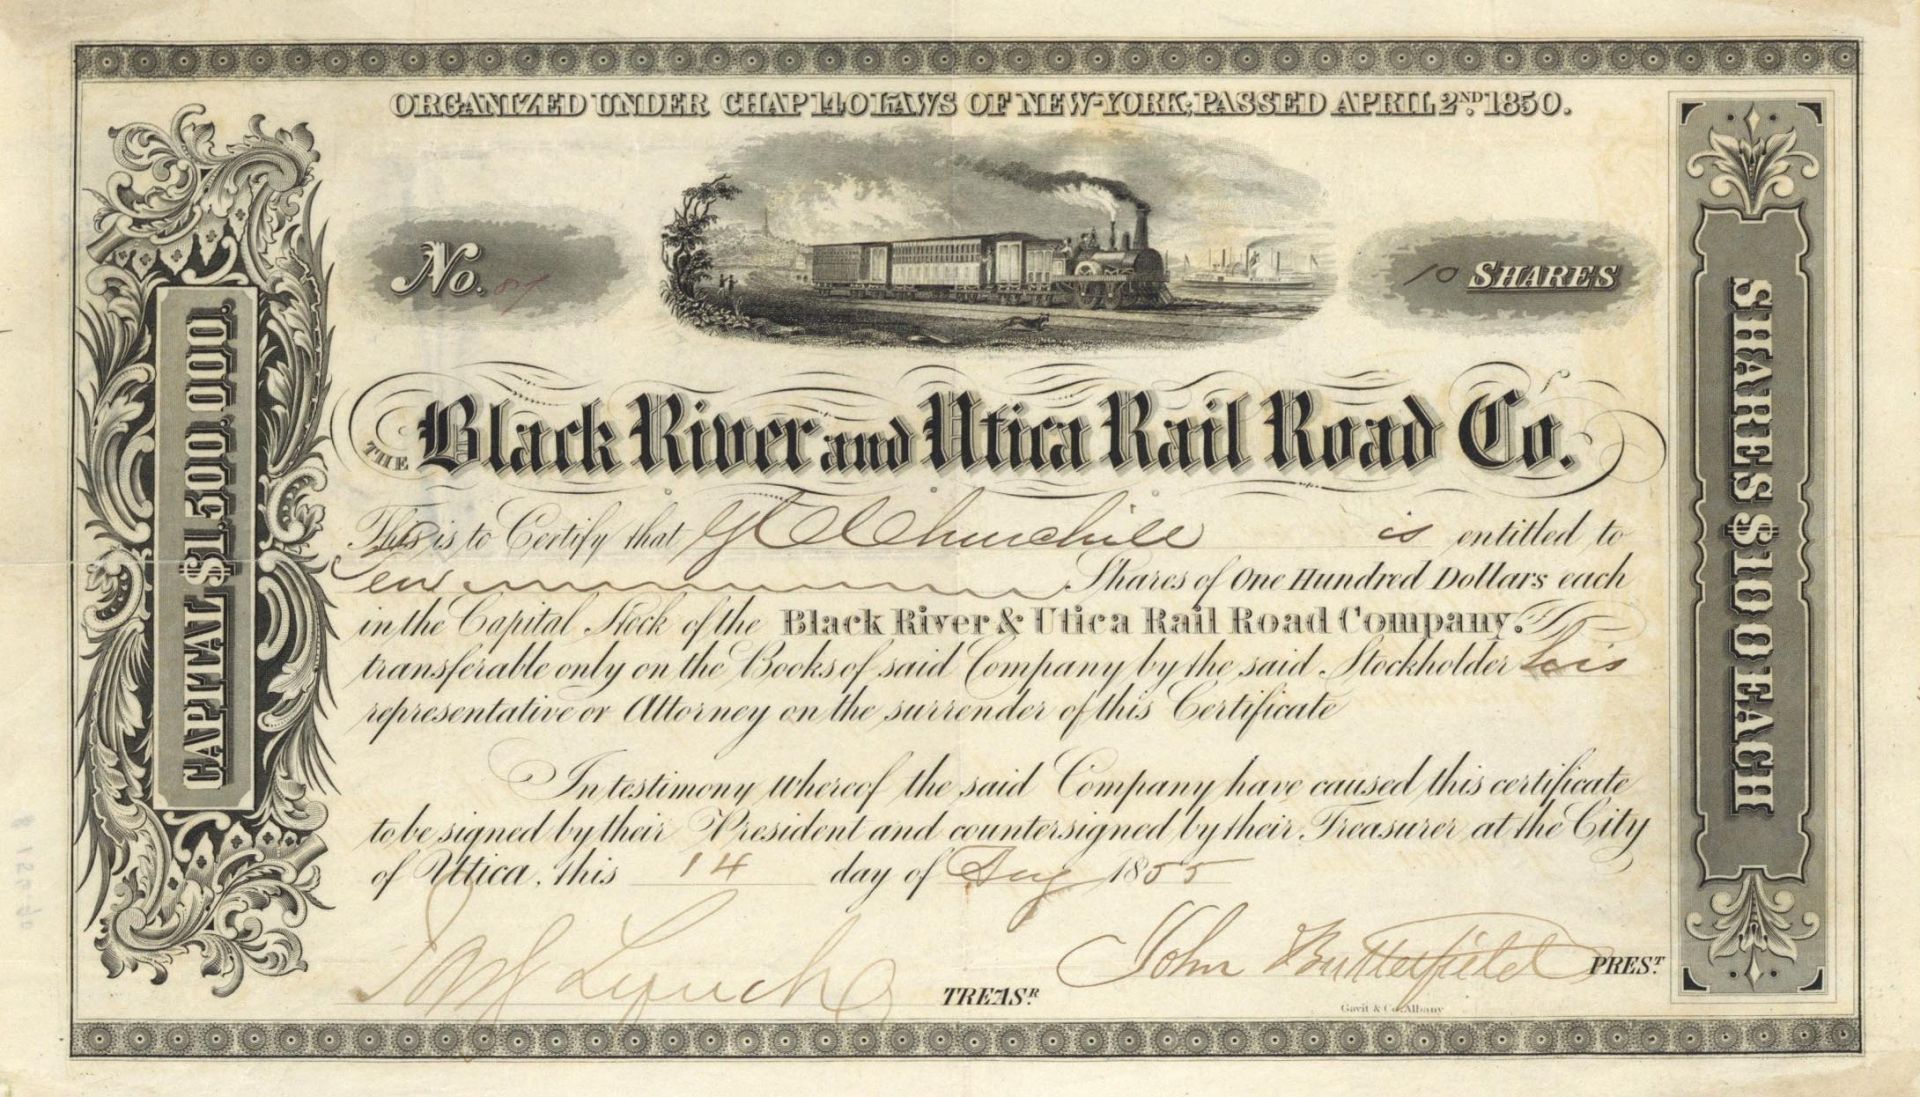 ORGANIZED UNDER CHAP 140 LAWS OF NEW-YORK, PASSED APRIL 2ND. 1850.
No. 87
10 SHARES
THE Black River and Utica Rail Road Co.
This is to Certify that Churchill is entitled to
Ten Shares of One Hundred Dollars each
in the Capital Stock of the Black River & Utica Rail Road Company.
transferable only on the Books of said Company by the said Stockholder his
representative or Attorney on the surrender of this Certificate
In testimony whereof the said Company have caused this certificate
to be signed by their President and countersigned by their Treasurer at the City
of Utica, this 14 day of Aug 1855
Lynch TREASR.
John Butterfield PREST.
Gavit & Co. Albany
CAPITAL $1,500,000.
SHARES $100 EACH